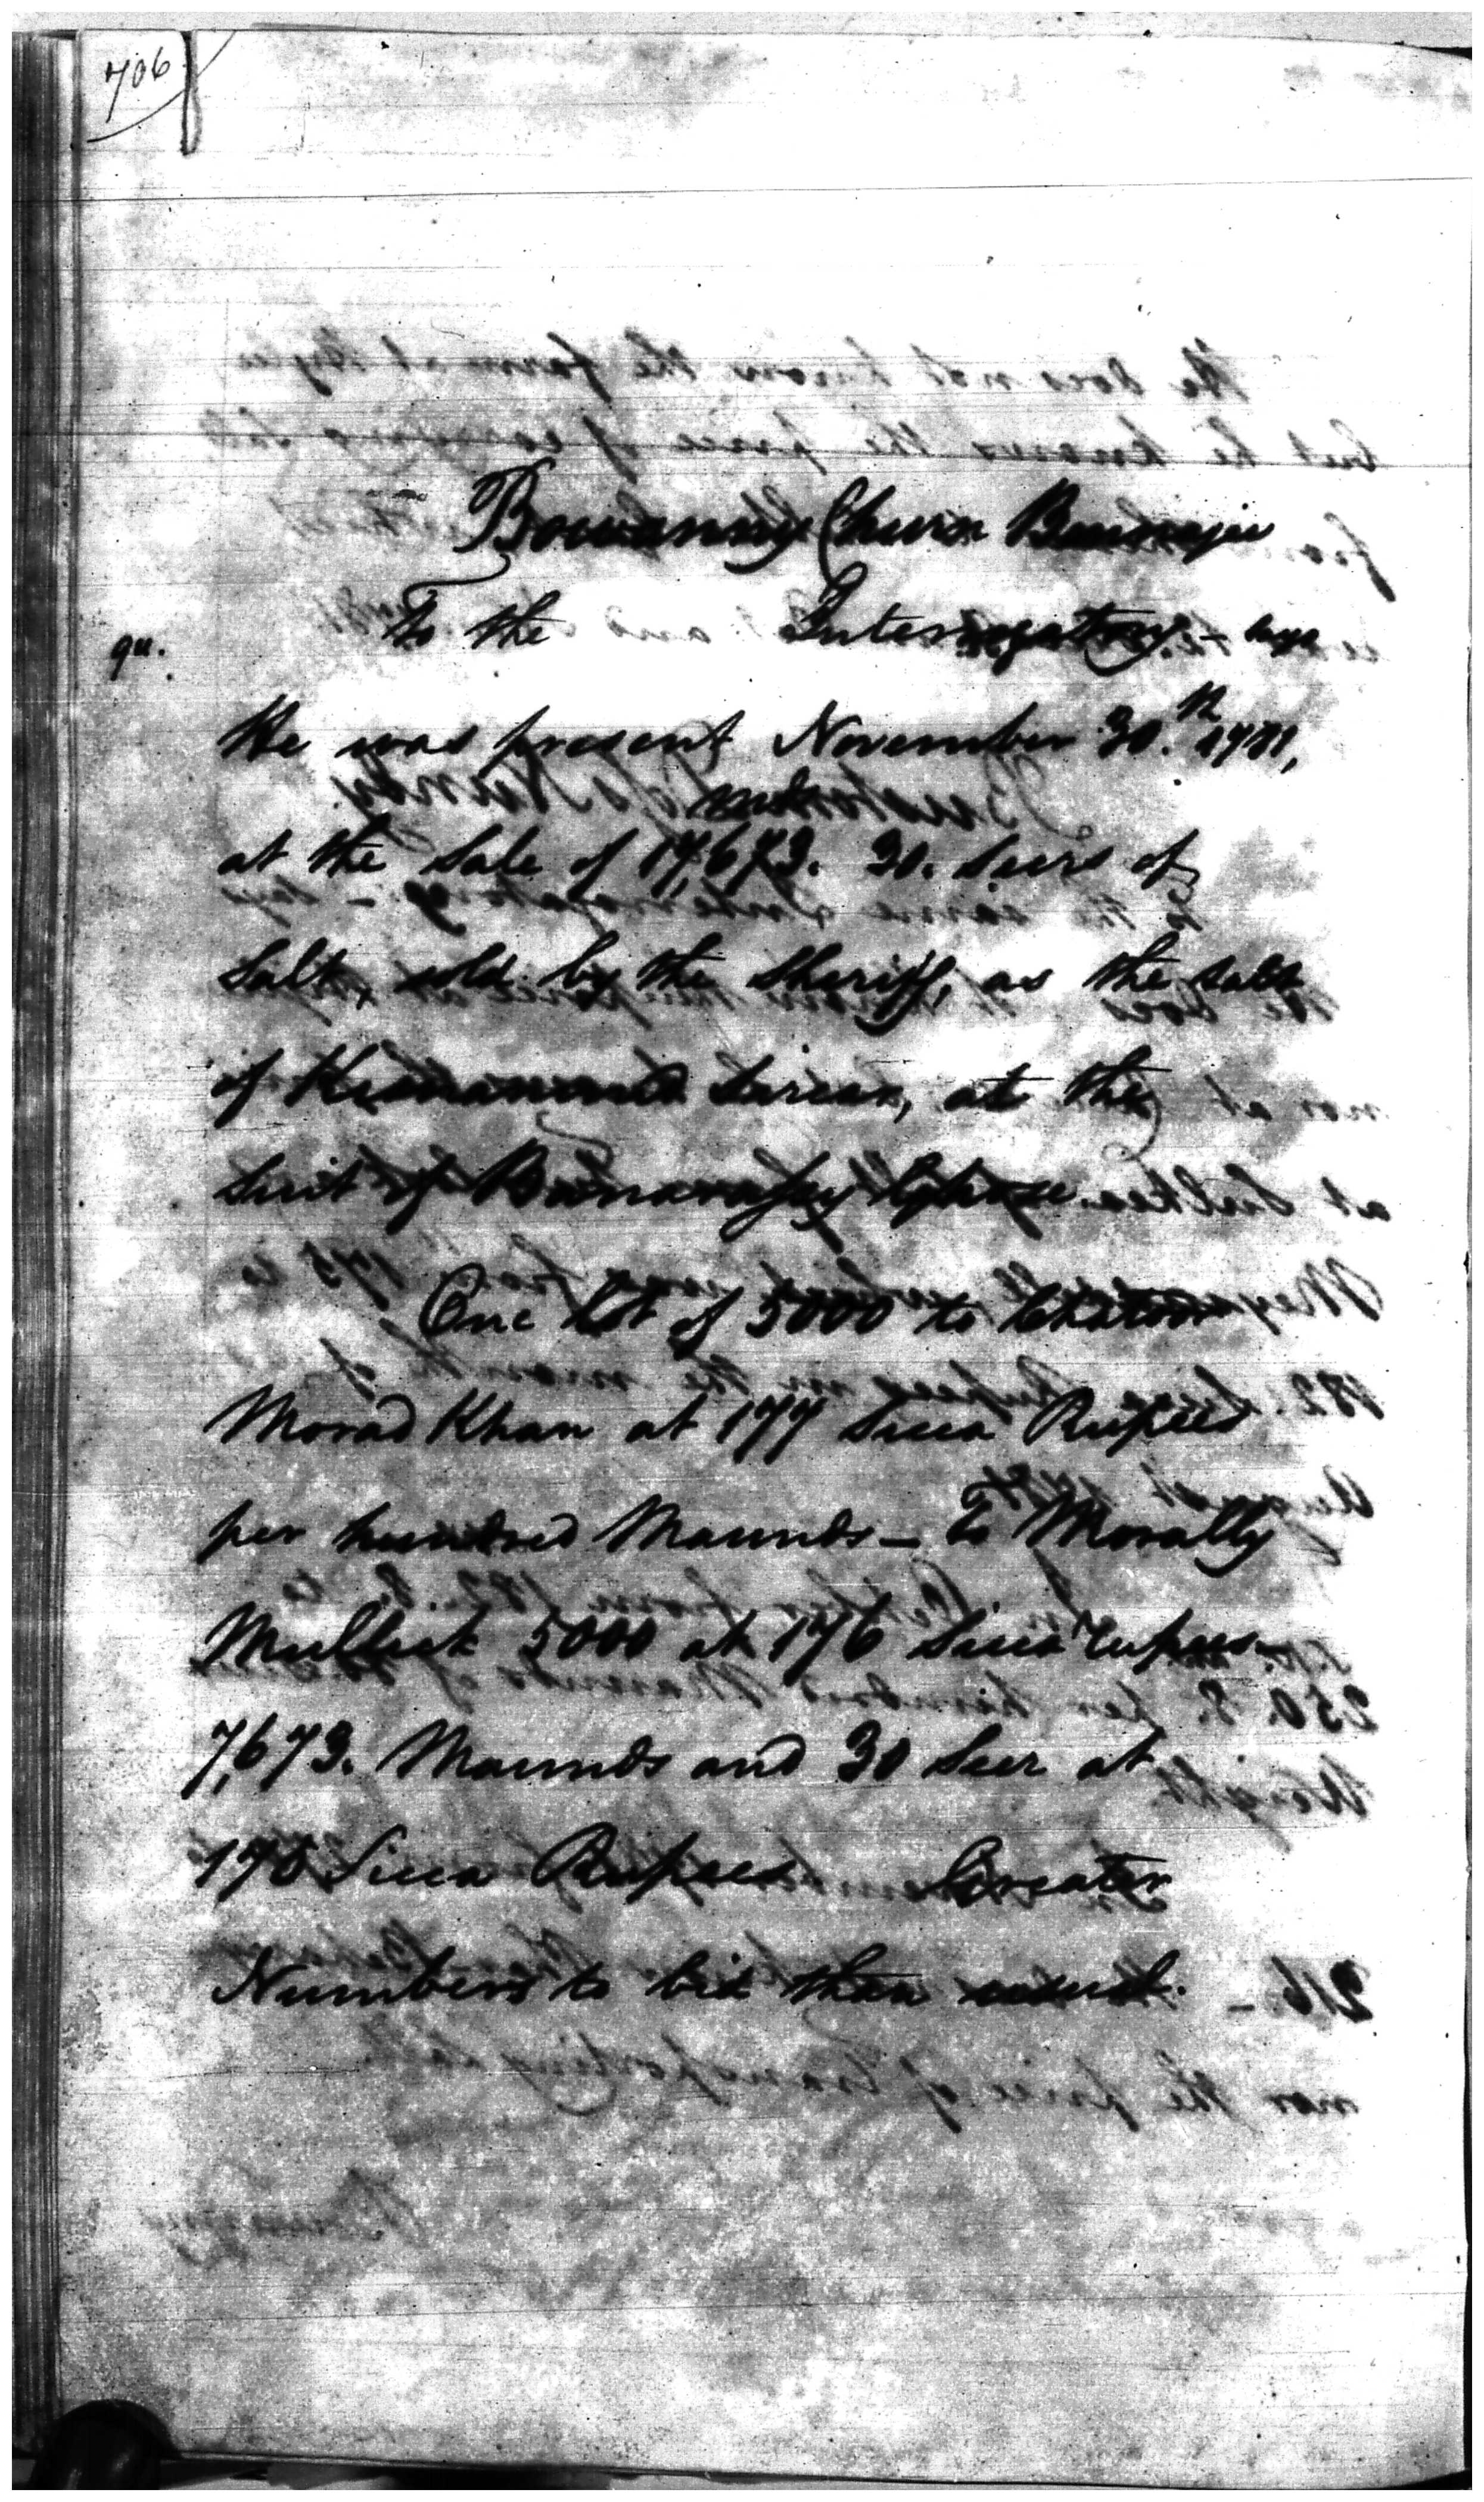 706
Bowanny Churn Bannojee
qu. To the Interrogatory - says
He was present November 30.th 1781,
mds
at the Sale of 17,673. 30. Seers of
Salt, sold by the Sheriff, as the salt
of Sircar, at the
Suit of Banarassy Ghose.
One Lot of 5000 to
Morad Khan at 177 Sicca Rupees
per hundred Maunds - To Moratty
Mullick 5000 at 176 Sicca rupees -
7,673. Maunds and 30 Seer at
175 Sicca Rupees Greater
Numbers to bid than usual.